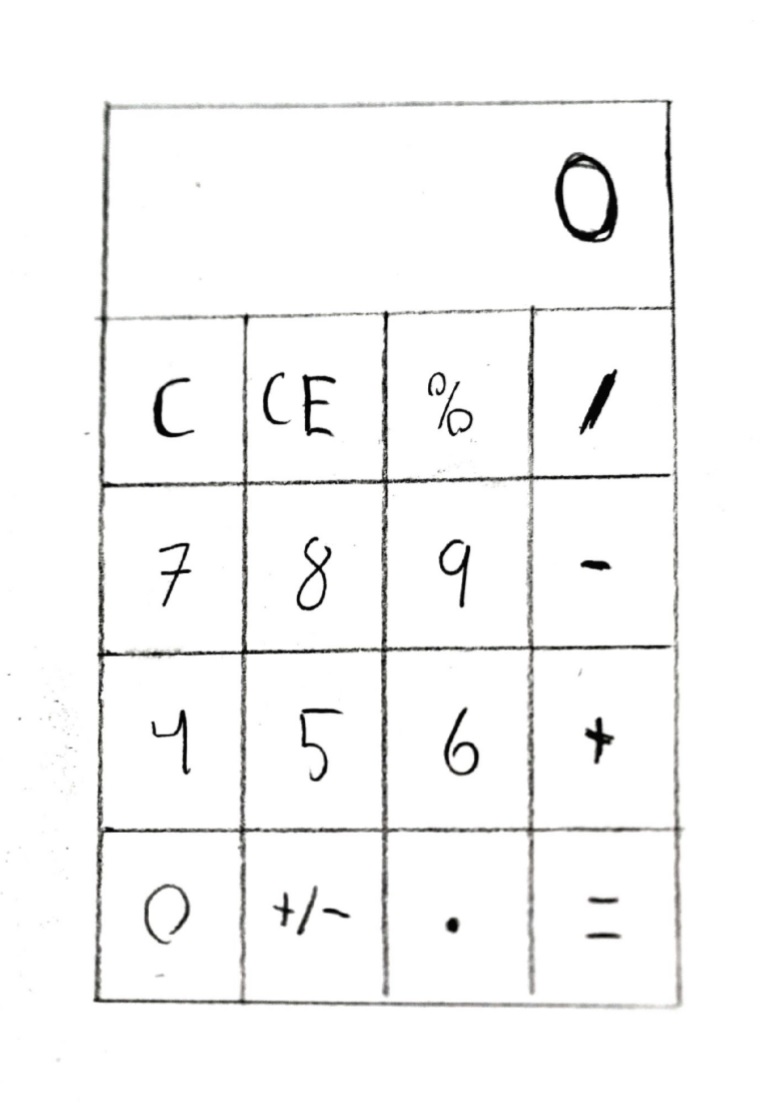 0
C CE % /
7 8 9 -
4 5 6 +
0 +/- . =